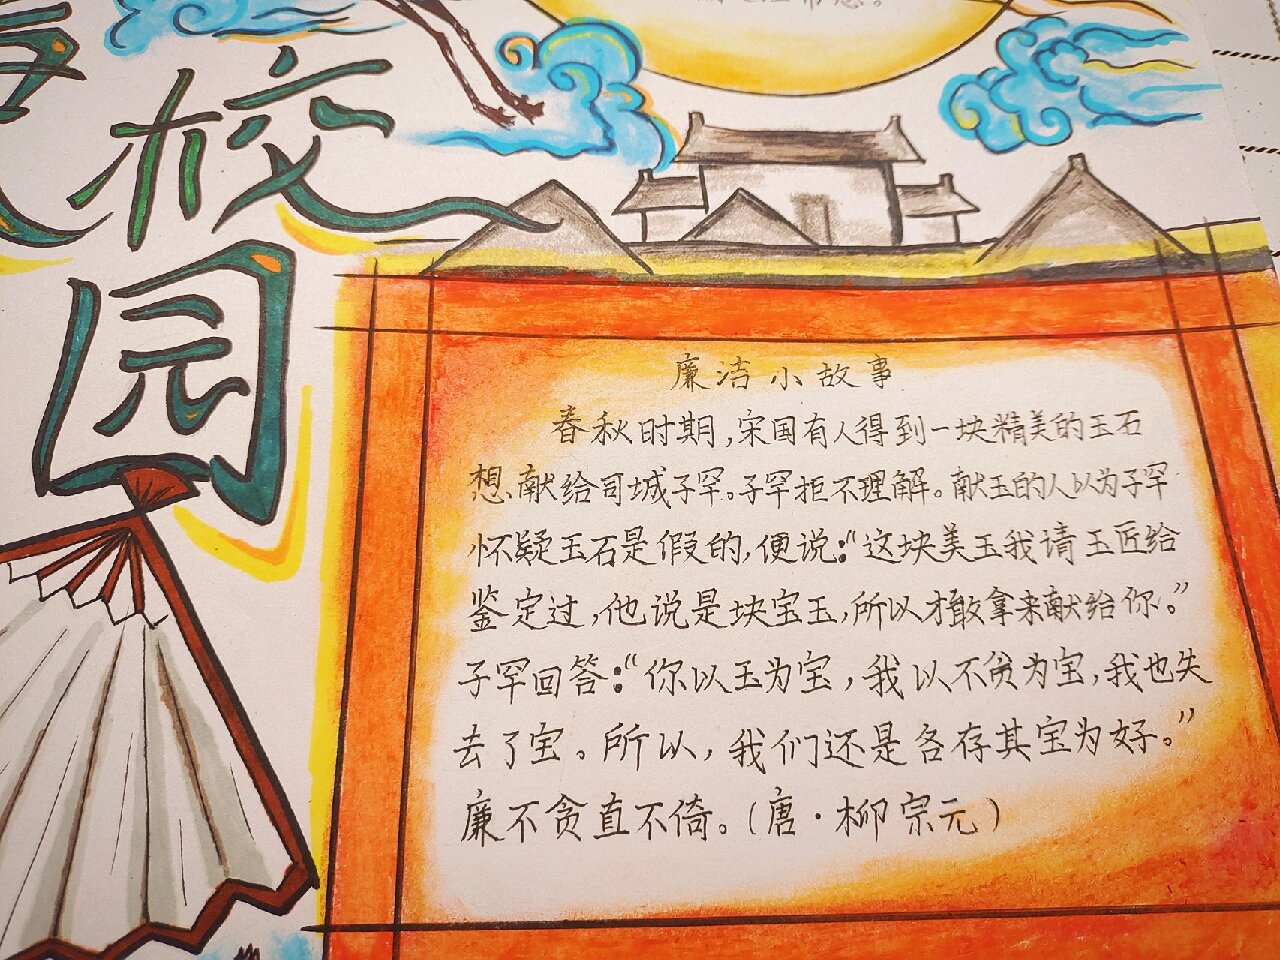 校
园
廉洁小故事
春秋时期，宋国有人得到一块精美的玉石
想献给司城子罕。子罕拒不理解。献玉的人以为子罕
怀疑玉石是假的，便说：“这块美玉我请玉匠给
鉴定过，他说是块宝玉，所以才敢拿来献给你。”
子罕回答：“你以玉为宝，我以不贪为宝，我也失
去了宝。所以，我们还是各存其宝为好。”
廉不贪直不倚。（唐·柳宗元）